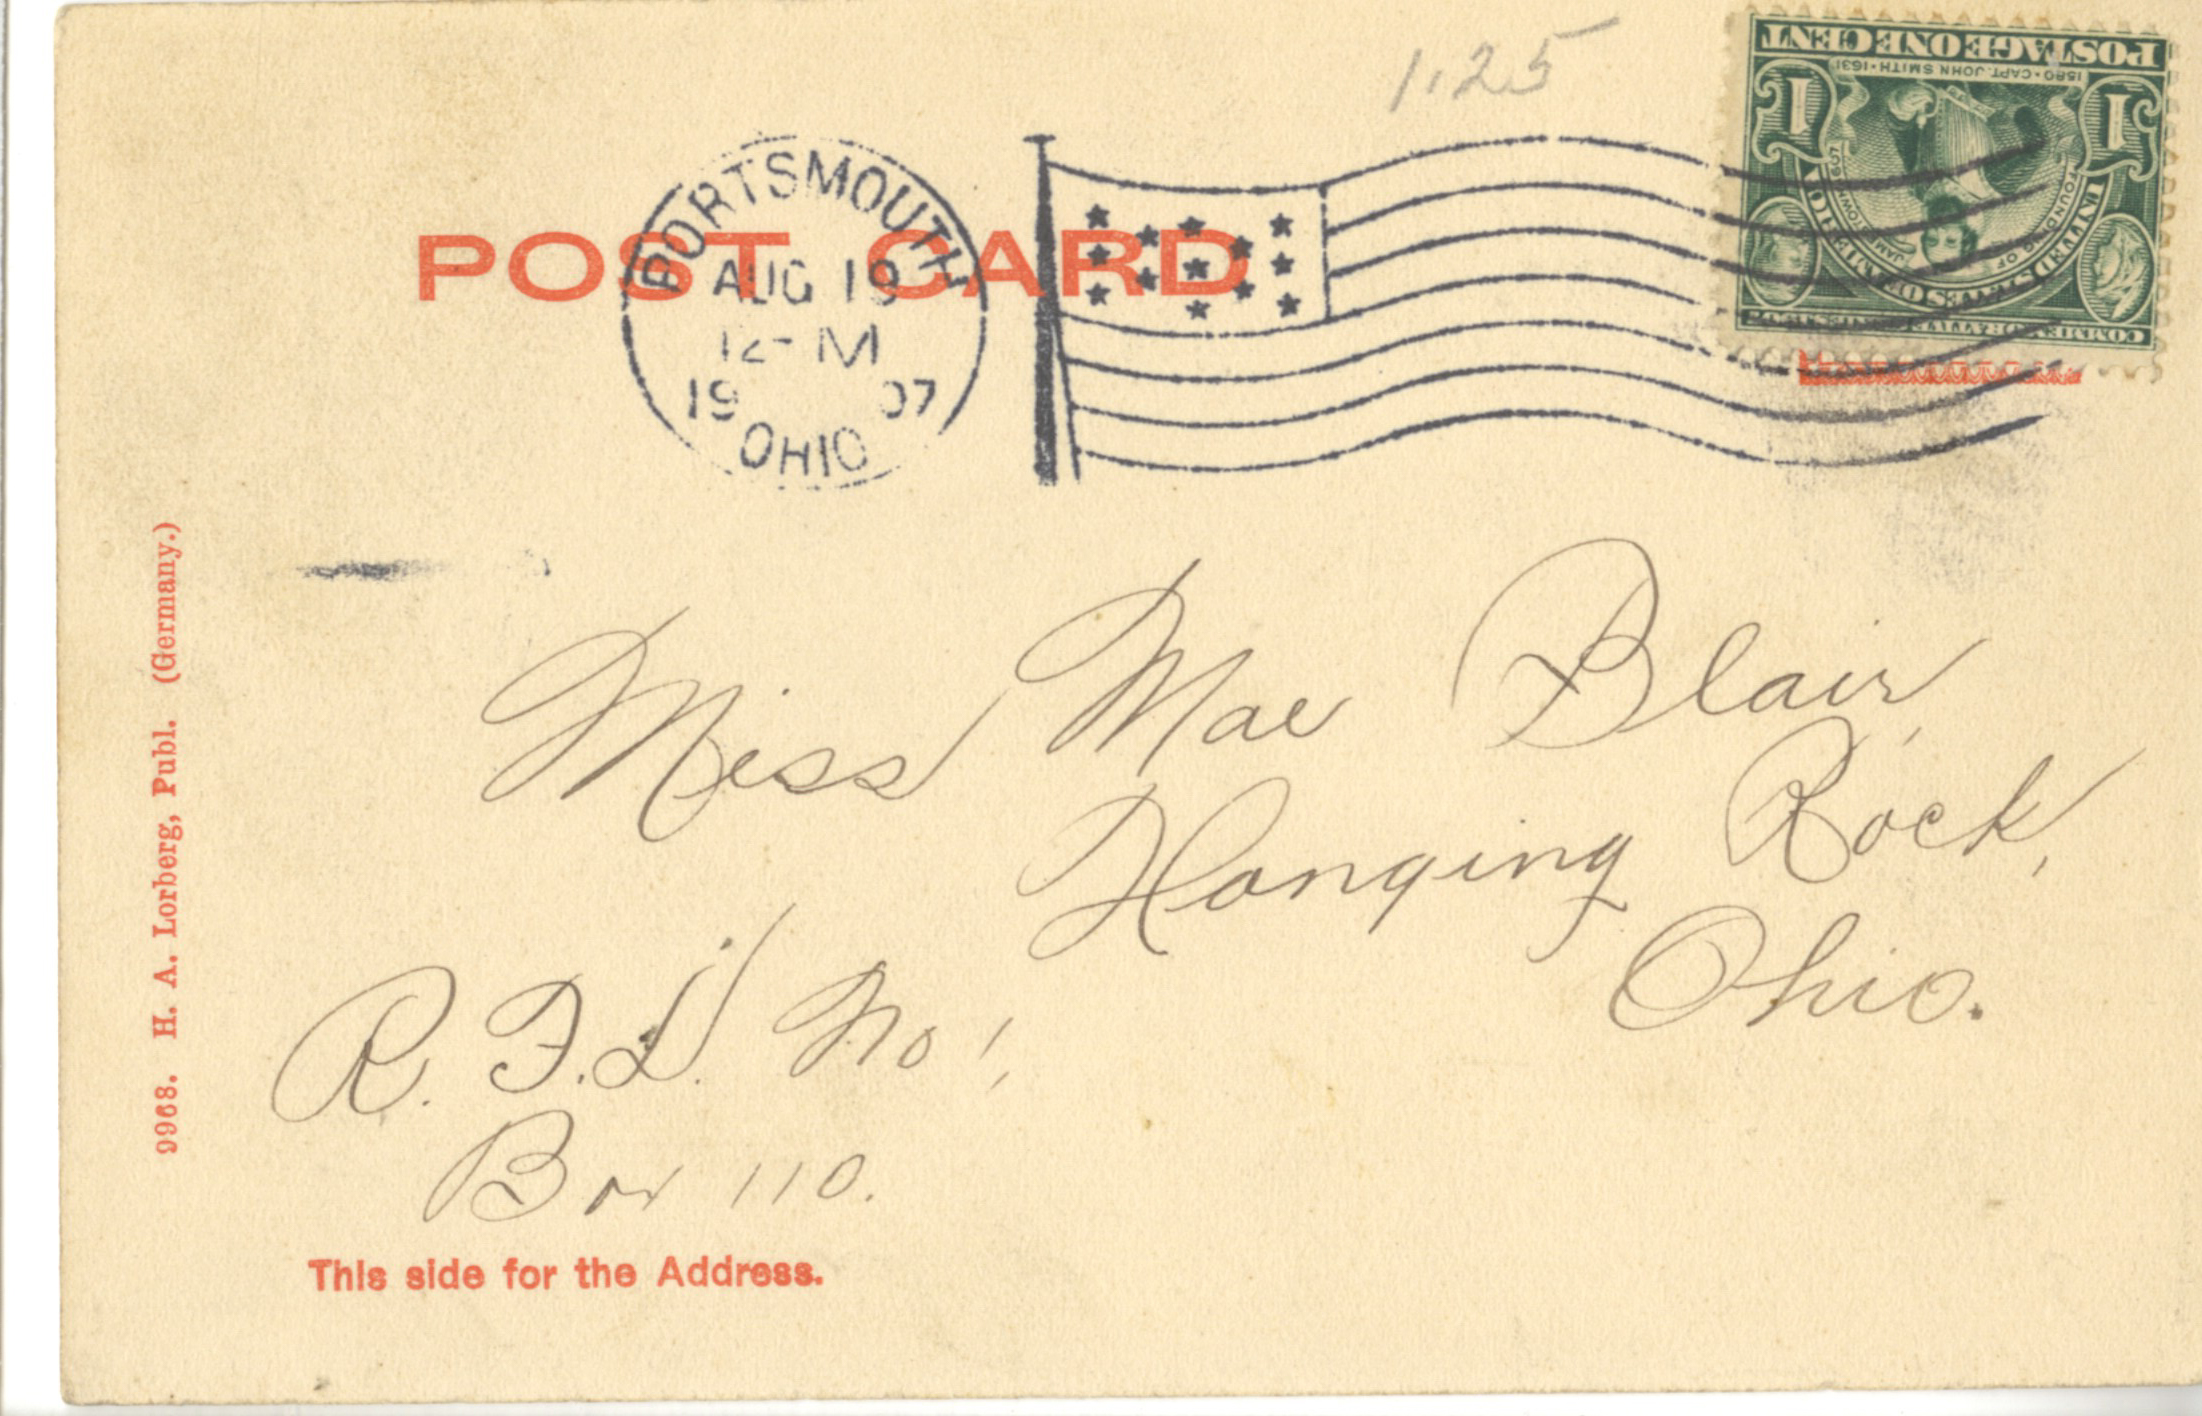 1.25
POSTAGE ONE CENT
1580 · CAPT. JOHN SMITH · 1631
1 1
FOUNDING OF JAMESTOWN 1607
UNITED STATES OF AMERICA
COMMEMORATIVE SERIES 1907
PORTSMOUTH
AUG 19
12- M
19 07
OHIO
POST CARD
Miss Mae Blair,
Hanging Rock,
Ohio.
R. F. D. No 1,
Box 110.
This side for the Address.
9968. H. A. Lorberg, Publ. (Germany.)